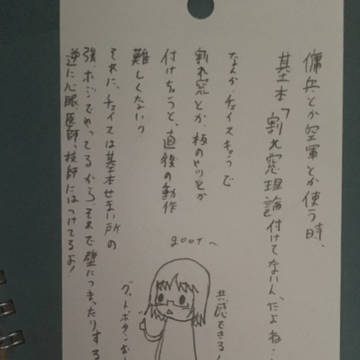 傭兵とか空軍とか使う時、
基本「割れ窓理論付けてないんだよね…
なんか チェイスキャラで
割れ窓とか、板のやつとか
付けちゃうと、直後の動作
難しくない?
それに、チェイスは基本せまい所の
強ポジでやってるから、それで壁につまったりする
逆に心眼、医師、技師にはつけてるよ!
goot～
共感できる
グットボタン